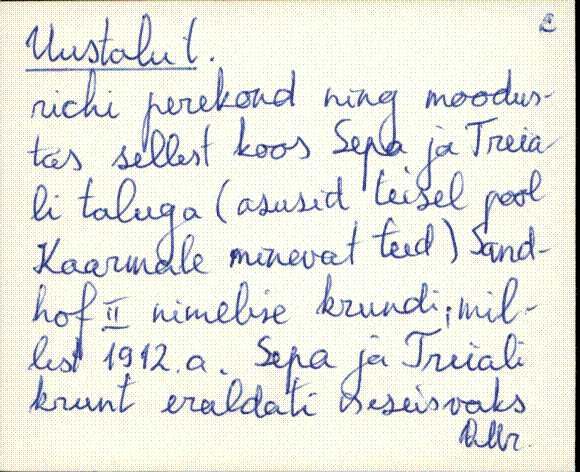 2
Uustalu l.
richi perekond ning moodus-
tas sellest koos Sepa ja Treia-
li taluga (asusid teisel pool
Kaarmale minevat teed) Sand-
hof II nimelise krundi, mil-
lest 1912.a. Sepa ja Treiali
krunt eraldati iseseisvaks